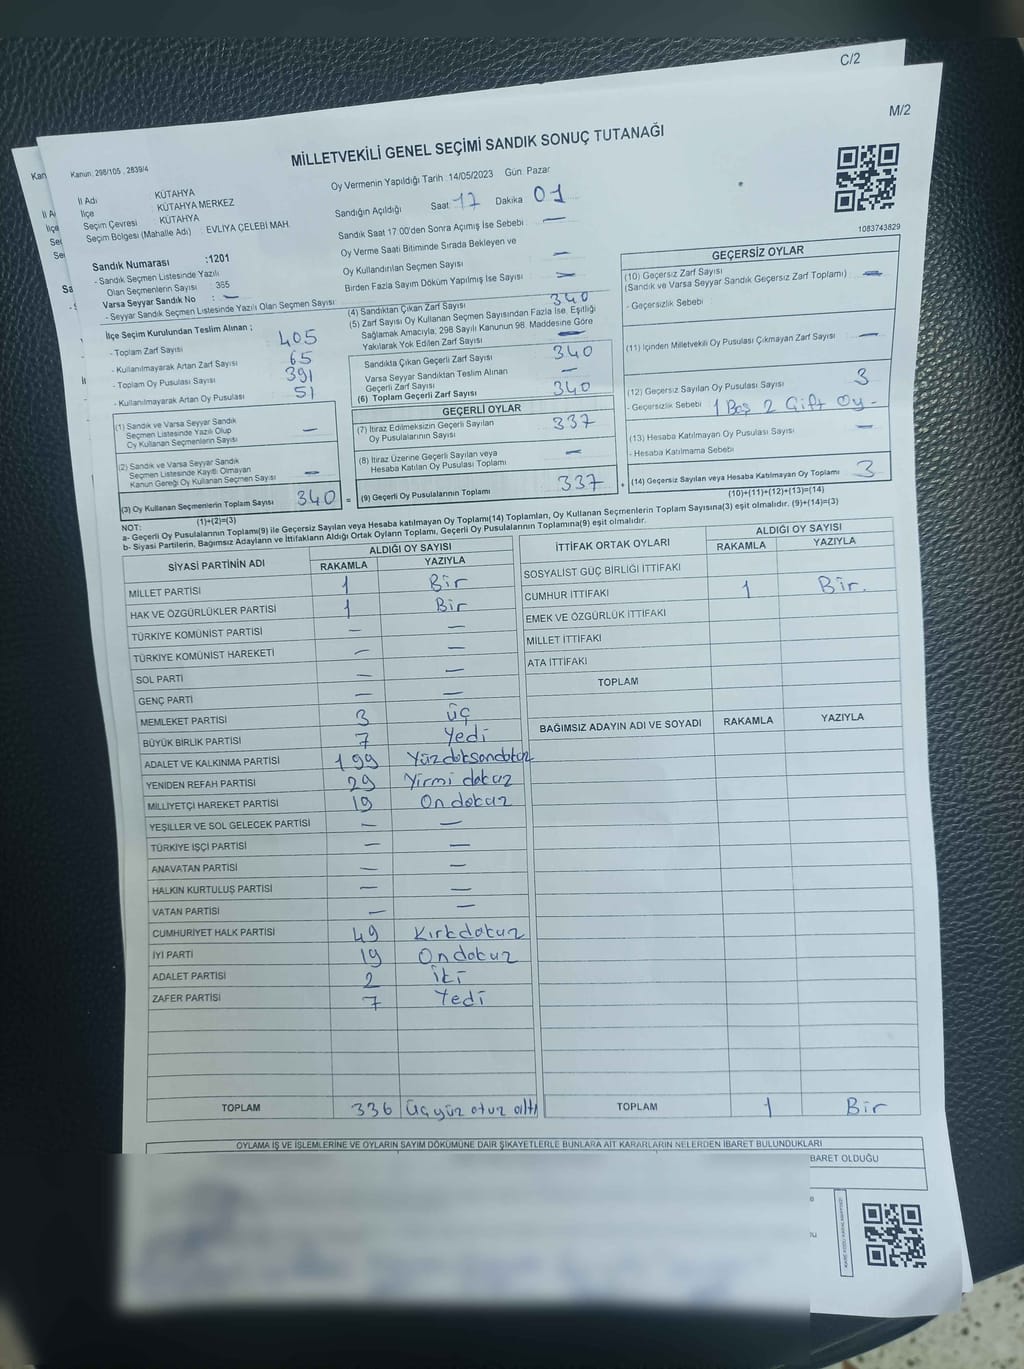 C/2
M/2
Kanun: 298/105 , 2839/4
MİLLETVEKİLİ GENEL SEÇİMİ SANDIK SONUÇ TUTANAĞI
1083743829
İl Adı KÜTAHYA
İlçe KÜTAHYA MERKEZ
Seçim Çevresi KÜTAHYA
Seçim Bölgesi (Mahalle Adı) : EVLİYA ÇELEBİ MAH.
Sandık Numarası :1201
- Sandık Seçmen Listesinde Yazılı
Olan Seçmenlerin Sayısı : 365
Varsa Seyyar Sandık No : —
- Seyyar Sandık Seçmen Listesinde Yazılı Olan Seçmen Sayısı
Oy Vermenin Yapıldığı Tarih : 14/05/2023 Gün: Pazar
Sandığın Açıldığı Saat 17 Dakika 01
Sandık Saat 17.00'den Sonra Açımış İse Sebebi —
Oy Verme Saati Bitiminde Sırada Bekleyen ve
Oy Kullandırılan Seçmen Sayısı —
Birden Fazla Sayım Döküm Yapılmış İse Sayısı —
İlçe Seçim Kurulundan Teslim Alınan ;
- Toplam Zarf Sayısı 405
- Kullanılmayarak Artan Zarf Sayısı 65
- Toplam Oy Pusulası Sayısı 391
- Kullanılmayarak Artan Oy Pusulası 51
(1) Sandık ve Varsa Seyyar Sandık
Seçmen Listesinde Yazılı Olup
Oy Kullanan Seçmenlerin Sayısı —
(2) Sandık ve Varsa Seyyar Sandık
Seçmen Listesinde Kayıtlı Olmayan
Kanun Gereği Oy Kullanan Seçmen Sayısı —
(3) Oy Kullanan Seçmenlerin Toplam Sayısı 340 =
(1)+(2)=(3)
(4) Sandıktan Çıkan Zarf Sayısı 340
(5) Zarf Sayısı Oy Kullanan Seçmen Sayısından Fazla İse, Eşitliği
Sağlamak Amacıyla, 298 Sayılı Kanunun 98. Maddesine Göre
Yakılarak Yok Edilen Zarf Sayısı —
Sandıkta Çıkan Geçerli Zarf Sayısı 340
Varsa Seyyar Sandıktan Teslim Alınan
Geçerli Zarf Sayısı —
(6) Toplam Geçerli Zarf Sayısı 340
GEÇERLİ OYLAR
(7) İtiraz Edilmeksizin Geçerli Sayılan
Oy Pusulalarının Sayısı 337
(8) İtiraz Üzerine Geçerli Sayılan veya
Hesaba Katılan Oy Pusulası Toplamı —
(9) Geçerli Oy Pusulalarının Toplamı 337 +
GEÇERSİZ OYLAR
(10) Geçersiz Zarf Sayısı
(Sandık ve Varsa Seyyar Sandık Geçersiz Zarf Toplamı) —
- Geçersizlik Sebebi :
(11) İçinden Milletvekili Oy Pusulası Çıkmayan Zarf Sayısı —
(12) Geçersiz Sayılan Oy Pusulası Sayısı 3
- Geçersizlik Sebebi 1 Boş 2 Çift Oy -
(13) Hesaba Katılmayan Oy Pusulası Sayısı —
- Hesaba Katılmama Sebebi
(14) Geçersiz Sayılan veya Hesaba Katılmayan Oy Toplamı 3
(10)+(11)+(12)+(13)=(14)
NOT:
a- Geçerli Oy Pusulalarının Toplamı(9) ile Geçersiz Sayılan veya Hesaba katılmayan Oy Toplamı(14) Toplamları, Oy Kullanan Seçmenlerin Toplam Sayısına(3) eşit olmalıdır. (9)+(14)=(3)
b- Siyasi Partilerin, Bağımsız Adayların ve İttifakların Aldığı Ortak Oyların Toplamı, Geçerli Oy Pusulalarının Toplamına(9) eşit olmalıdır.
SİYASİ PARTİNİN ADI ALDIĞI OY SAYISI
RAKAMLA YAZIYLA
MİLLET PARTİSİ 1 Bir
HAK VE ÖZGÜRLÜKLER PARTİSİ 1 Bir
TÜRKİYE KOMÜNİST PARTİSİ — —
TÜRKİYE KOMÜNİST HAREKETİ — —
SOL PARTİ — —
GENÇ PARTİ — —
MEMLEKET PARTİSİ 3 üç
BÜYÜK BİRLİK PARTİSİ 7 Yedi
ADALET VE KALKINMA PARTİSİ 199 Yüzdoksandokuz
YENİDEN REFAH PARTİSİ 29 Yirmi dokuz
MİLLİYETÇİ HAREKET PARTİSİ 19 On dokuz
YEŞİLLER VE SOL GELECEK PARTİSİ — —
TÜRKİYE İŞÇİ PARTİSİ — —
ANAVATAN PARTİSİ — —
HALKIN KURTULUŞ PARTİSİ — —
VATAN PARTİSİ — —
CUMHURİYET HALK PARTİSİ 49 Kırkdokuz
İYİ PARTİ 19 Ondokuz
ADALET PARTİSİ 2 iki
ZAFER PARTİSİ 7 Yedi
TOPLAM 336 üçyüz otuz altı
İTTİFAK ORTAK OYLARI ALDIĞI OY SAYISI
RAKAMLA YAZIYLA
SOSYALİST GÜÇ BİRLİĞİ İTTİFAKI
CUMHUR İTTİFAKI 1 Bir.
EMEK VE ÖZGÜRLÜK İTTİFAKI
MİLLET İTTİFAKI
ATA İTTİFAKI
TOPLAM
BAĞIMSIZ ADAYIN ADI VE SOYADI RAKAMLA YAZIYLA
TOPLAM 1 Bir
OYLAMA İŞ VE İŞLEMLERİNE VE OYLARIN SAYIM DÖKÜMÜNE DAİR ŞİKAYETLERLE BUNLARA AİT KARARLARIN NELERDEN İBARET BULUNDUKLARI
BARET OLDUĞU